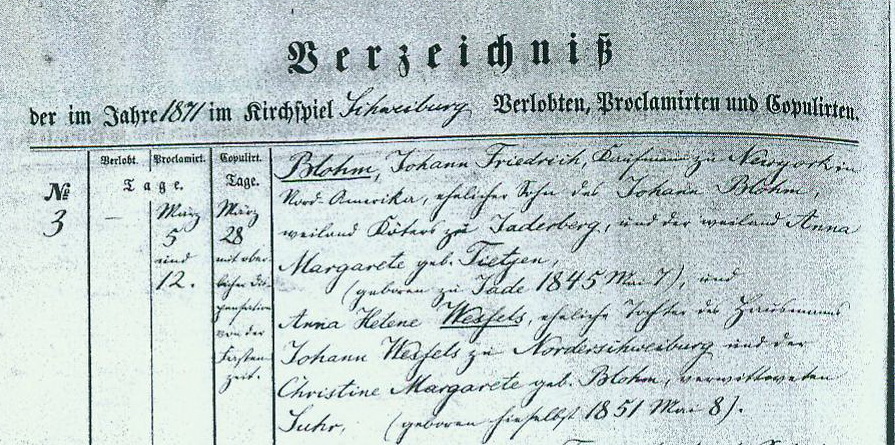 Verzeichniß
der im Jahre 1871 im Kirchspiel Schweiburg Verlobten, Proclamirten und Copulirten.
№
3
Verlobt.
Proclamirt.
Copulirt.
Tage.
Tage.
—
März
5
und
12.
März
28
mit ober-
licher Dis-
pensation
von der
Fasten-
zeit.
Blohm, Johann Friedrich, Kaufmann zu Newyork in
Nord-Amerika, ehelicher Sohn des Johann Blohm,
weiland Köters zu Jaderberg, und der weiland Anna
Margarete geb. Tietjen,
(geboren zu Jade 1845 Mai 7), und
Anna Helene Wessels, eheliche Tochter des Hausmanns
Johann Wessels zu Norderschweiburg und der
Christine Margarete geb. Blohm, verwittweten
Suhr, (geboren hieselbst 1851 Mai 8).